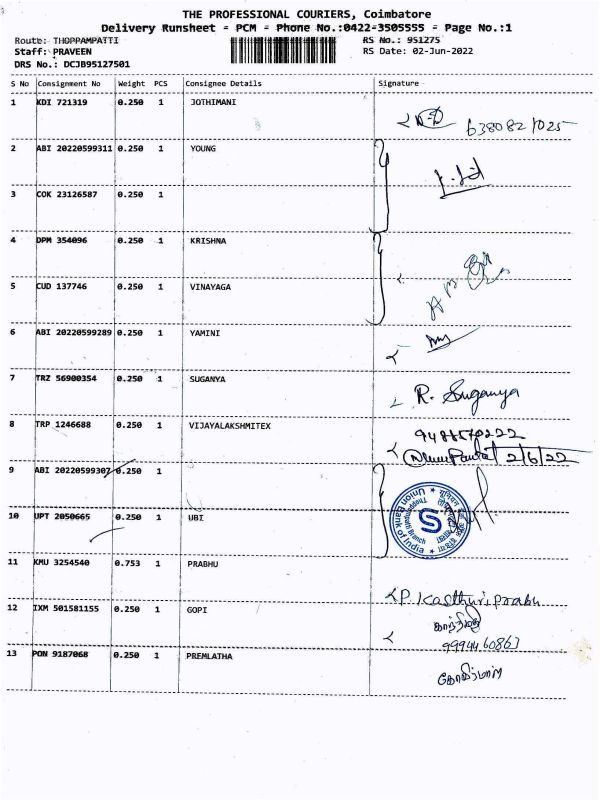 THE PROFESSIONAL COURIERS, Coimbatore
Delivery Runsheet - PCM - Phone No.:0422-3505555 - Page No.:1
Route: THOPPAMPATTI RS No.: 951275
Staff: PRAVEEN RS Date: 02-Jun-2022
DRS No.: DCJB95127501
S No Consignment No Weight PCS Consignee Details Signature
1 KDI 721319 0.250 1 JOTHIMANI
6380821025
2 ABI 20220599311 0.250 1 YOUNG
3 COK 23126587 0.250 1
4 DPM 354096 0.250 1 KRISHNA
5 CUD 137746 0.250 1 VINAYAGA
6 ABI 20220599289 0.250 1 YAMINI
7 TRZ 56900354 0.250 1 SUGANYA
R. Suganya
8 TRP 1246688 0.250 1 VIJAYALAKSHMITEX
2/6/22
9 ABI 20220599307 0.250 1
10 UPT 2050665 0.250 1 UBI
Union Bank of India
Thoppampatti Branch
11 KMU 3254540 0.753 1 PRABHU
P. Kasthuri prabu
12 IXM 501581155 0.250 1 GOPI
13 PON 9187068 0.250 1 PREMLATHA